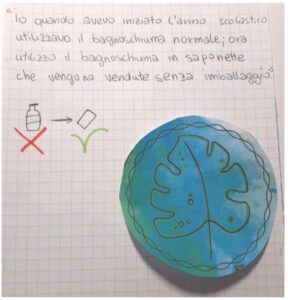 "Io quando avevo iniziato l'anno scolastico
utilizzavo il bagnoschiuma normale; ora
utilizzo il bagnoschiuma in saponette
che vengono vendute senza imballaggio."